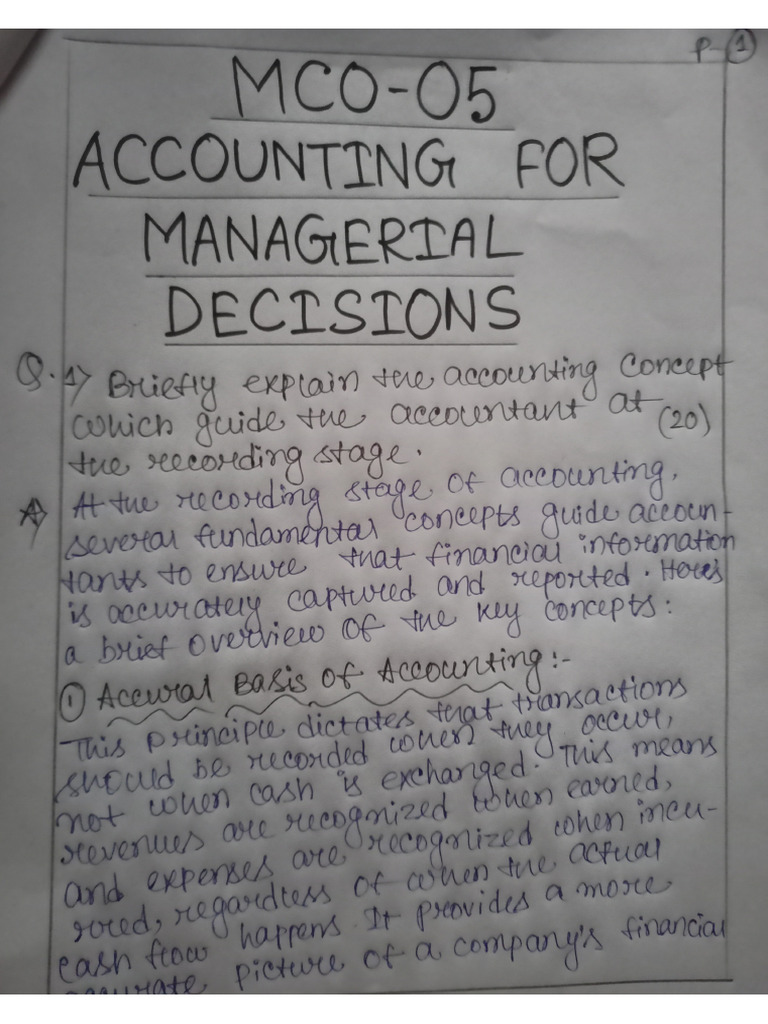 P-1
MCO-05
ACCOUNTING FOR
MANAGERIAL
DECISIONS
Q.1> Briefly explain the accounting concept
which guide the accountant at (20)
the recording stage.
A> At the recording stage of accounting,
several fundamental concepts guide accoun-
tants to ensure that financial information
is accurately captured and reported. Here's
a brief overview of the key concepts:
① Accural Basis of Accounting:-
This principle dictates that transactions
should be recorded when they occur,
not when cash is exchanged. This means
revenues are recognized when earned,
and expenses are recognized when incu-
rred, regardless of when the actual
cash flow happens. It provides a more
accurate picture of a company's financial